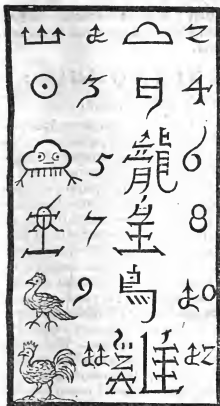 1 2
3 日 4
5 龍 6
7 8
9 鳥 10
11 12